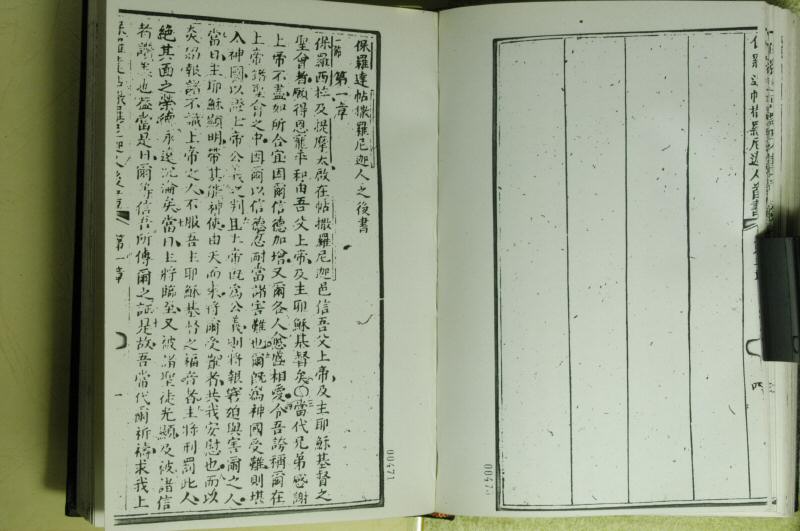 保羅達帖撒羅尼迦人之後書
第一章
保羅西拉及提摩太啟在帖撒羅尼迦邑信吾父上帝及主耶穌基督之
聖會者願得恩寵平和由吾父上帝及主耶穌基督矣〇當代兄弟感謝
上帝不盡如所合宜因爾信德加增又爾各人愈盛相愛令吾誇稱爾在
上帝諸聖會之中因爾以信德忍耐當諸害難也爾既爲神國受難則堪
入神國以證上帝公義之判且上帝既爲公義則將報窘迫與害爾之人
當日主耶穌顯明帶其能神使由天而來將爾受難者共我安慰也而以
炎焰報諸不識上帝之人不服吾主耶穌基督之福音者主將刑罰此人
絕其面之榮德永遠沉淪矣當日主將臨至又被諸聖徒光顯及被諸信
者讚美也蓋當是日爾等信吾所傳爾之証是故吾當代爾祈禱求我上
保羅達帖撒羅尼迦人後書 第一章
00471
0047